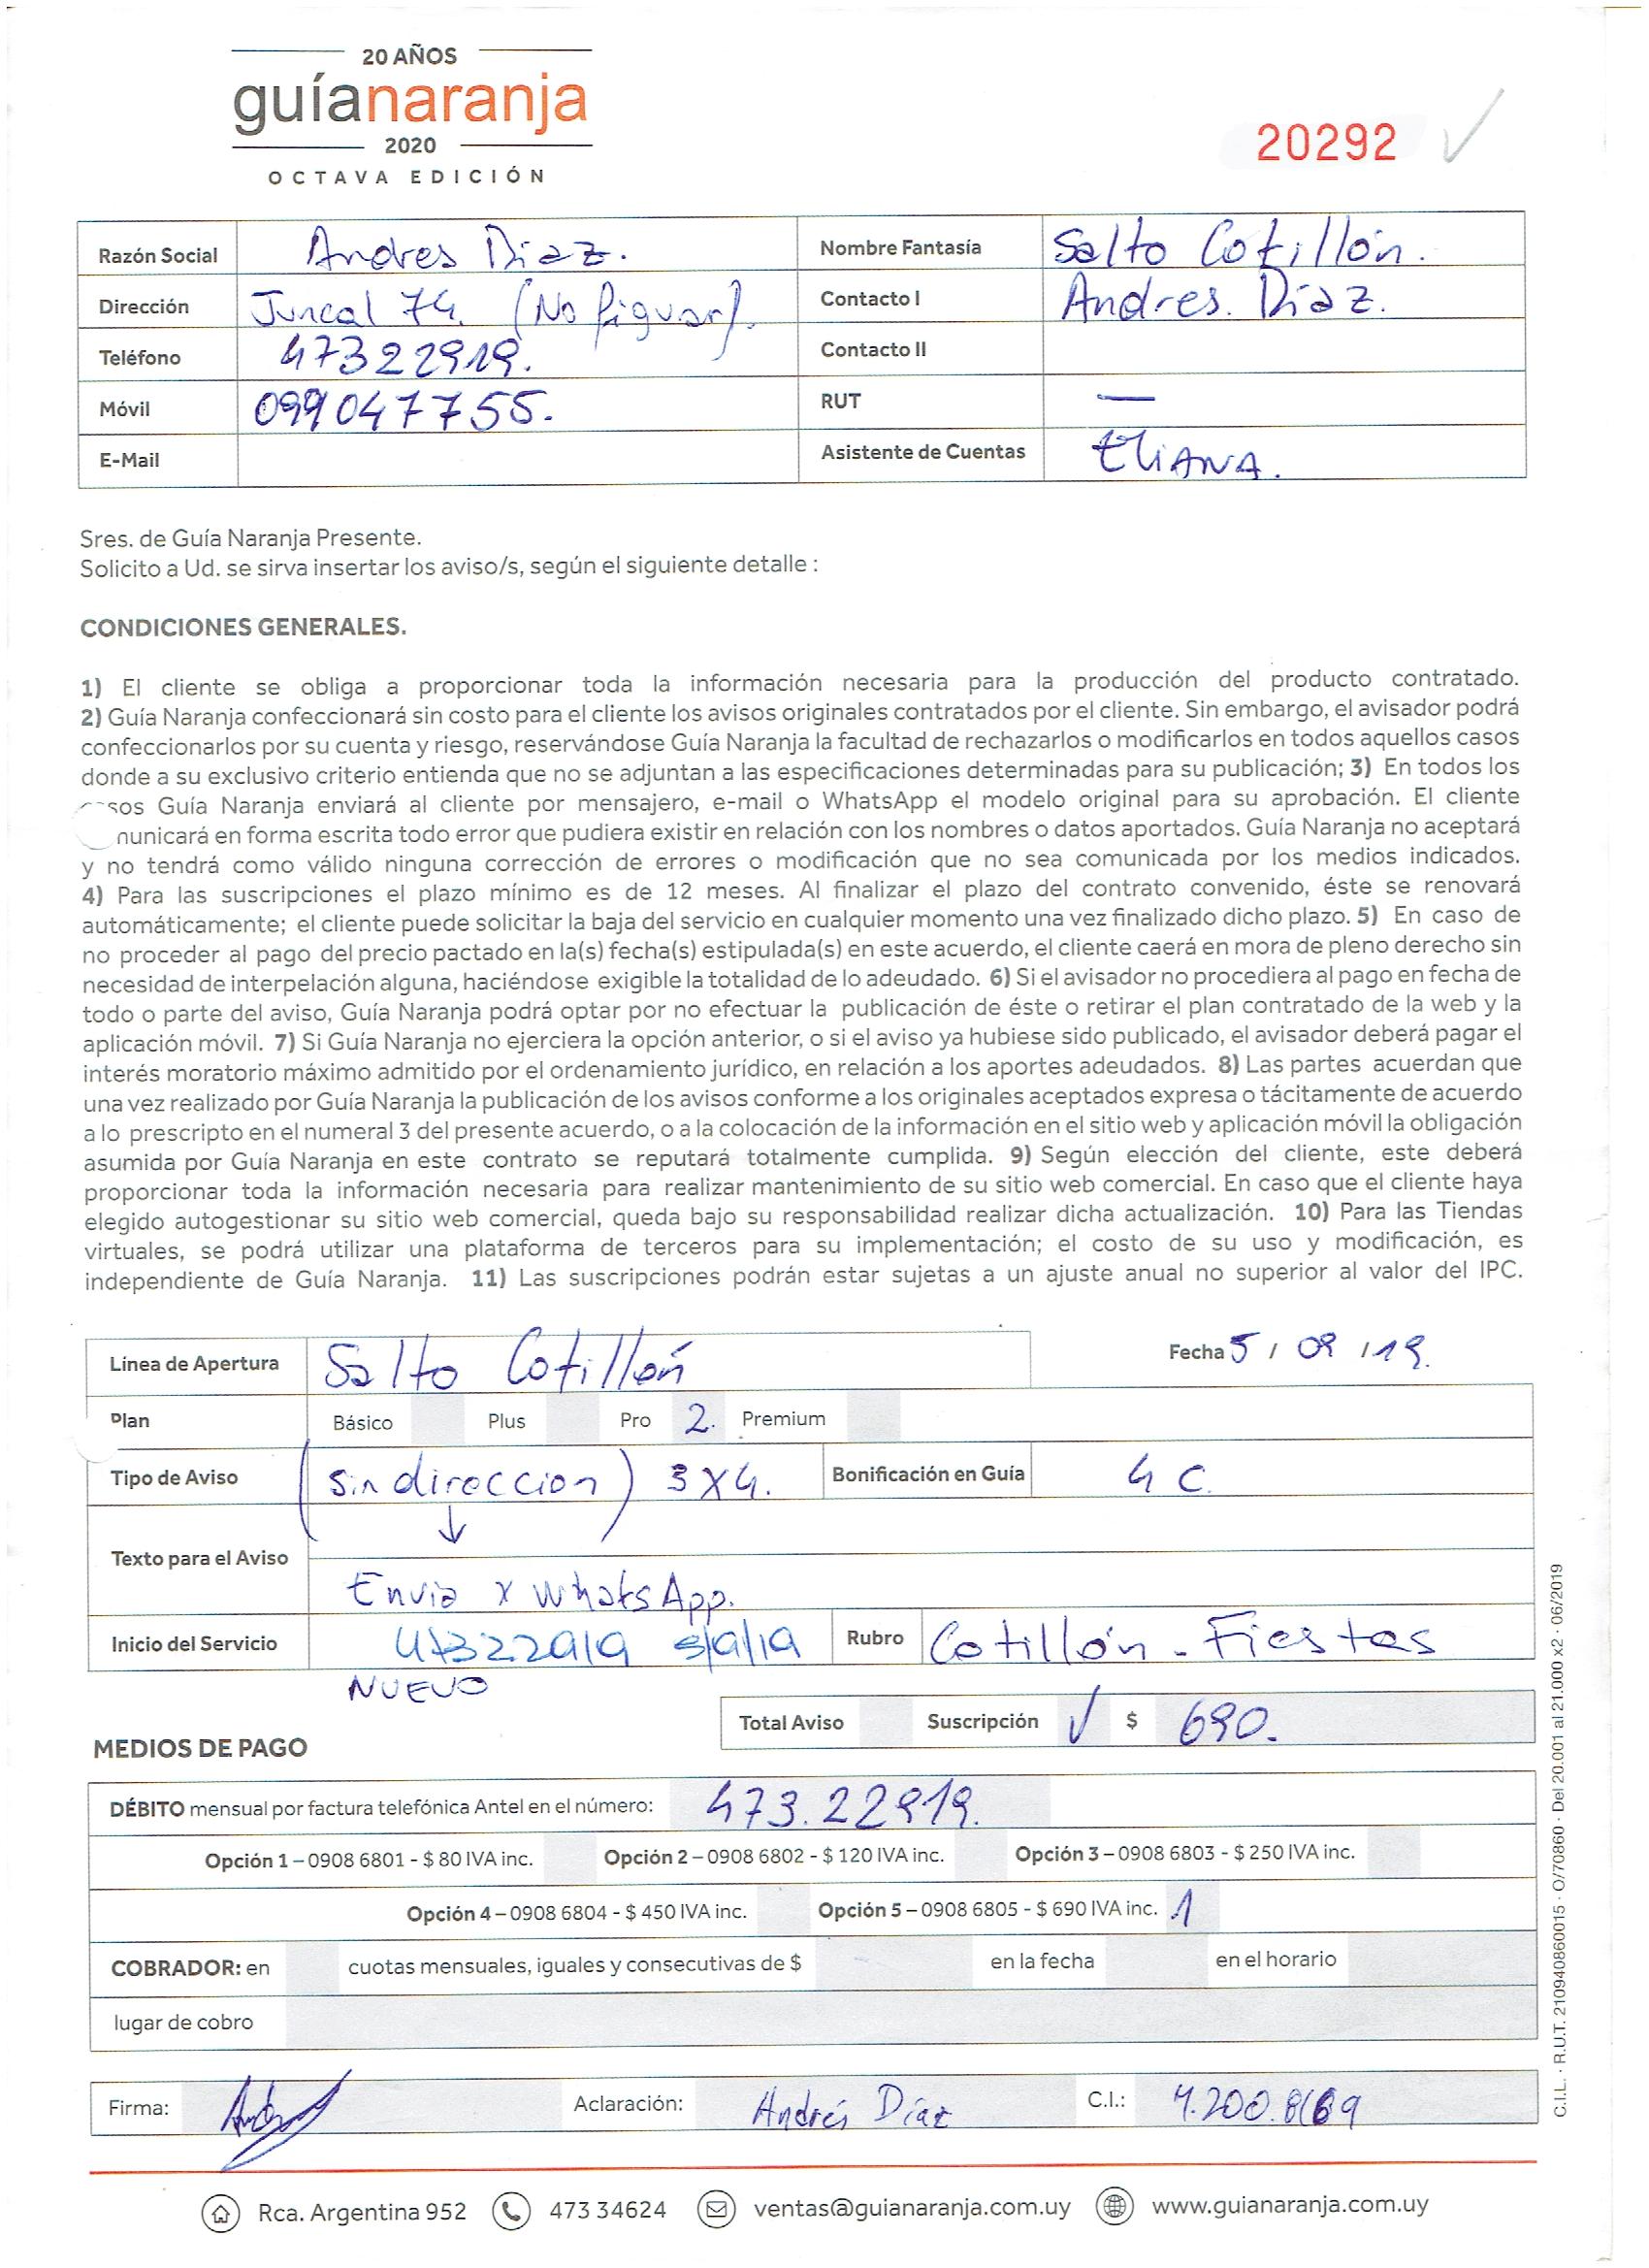 20 AÑOS
guíanaranja
2020
OCTAVA EDICIÓN
20292
Razón Social Andres Diaz. Nombre Fantasía Salto Cotillón.
Dirección Juncal 74. (No figurar). Contacto I Andres. Diaz.
Teléfono 47322919. Contacto II
Móvil 099047755. RUT —
E-Mail Asistente de Cuentas EliANA.
Sres. de Guía Naranja Presente.
Solicito a Ud. se sirva insertar los aviso/s, según el siguiente detalle :
CONDICIONES GENERALES.
1) El cliente se obliga a proporcionar toda la información necesaria para la producción del producto contratado.
2) Guía Naranja confeccionará sin costo para el cliente los avisos originales contratados por el cliente. Sin embargo, el avisador podrá
confeccionarlos por su cuenta y riesgo, reservándose Guía Naranja la facultad de rechazarlos o modificarlos en todos aquellos casos
donde a su exclusivo criterio entienda que no se adjuntan a las especificaciones determinadas para su publicación; 3) En todos los
sos Guía Naranja enviará al cliente por mensajero, e-mail o WhatsApp el modelo original para su aprobación. El cliente
nunicará en forma escrita todo error que pudiera existir en relación con los nombres o datos aportados. Guía Naranja no aceptará
y no tendrá como válido ninguna corrección de errores o modificación que no sea comunicada por los medios indicados.
4) Para las suscripciones el plazo mínimo es de 12 meses. Al finalizar el plazo del contrato convenido, éste se renovará
automáticamente; el cliente puede solicitar la baja del servicio en cualquier momento una vez finalizado dicho plazo. 5) En caso de
no proceder al pago del precio pactado en la(s) fecha(s) estipulada(s) en este acuerdo, el cliente caerá en mora de pleno derecho sin
necesidad de interpelación alguna, haciéndose exigible la totalidad de lo adeudado. 6) Si el avisador no procediera al pago en fecha de
todo o parte del aviso, Guía Naranja podrá optar por no efectuar la publicación de éste o retirar el plan contratado de la web y la
aplicación móvil. 7) Si Guía Naranja no ejerciera la opción anterior, o si el aviso ya hubiese sido publicado, el avisador deberá pagar el
interés moratorio máximo admitido por el ordenamiento jurídico, en relación a los aportes adeudados. 8) Las partes acuerdan que
una vez realizado por Guía Naranja la publicación de los avisos conforme a los originales aceptados expresa o tácitamente de acuerdo
a lo prescripto en el numeral 3 del presente acuerdo, o a la colocación de la información en el sitio web y aplicación móvil la obligación
asumida por Guía Naranja en este contrato se reputará totalmente cumplida. 9) Según elección del cliente, este deberá
proporcionar toda la información necesaria para realizar mantenimiento de su sitio web comercial. En caso que el cliente haya
elegido autogestionar su sitio web comercial, queda bajo su responsabilidad realizar dicha actualización. 10) Para las Tiendas
virtuales, se podrá utilizar una plataforma de terceros para su implementación; el costo de su uso y modificación, es
independiente de Guía Naranja. 11) Las suscripciones podrán estar sujetas a un ajuste anual no superior al valor del IPC.
Línea de Apertura Salto Cotillón Fecha 5 / 09 / 19.
Plan Básico Plus Pro 2. Premium
Tipo de Aviso (sin direccion) 3x4. Bonificación en Guía 4 C.
Texto para el Aviso
Envia x WhatsApp.
Inicio del Servicio 47322919 5/9/19 Rubro Cotillón - Fiestas
NUEVO
Total Aviso Suscripción ✓ $ 690.
MEDIOS DE PAGO
DÉBITO mensual por factura telefónica Antel en el número: 473.22919.
Opción 1 – 0908 6801 - $ 80 IVA inc. Opción 2 – 0908 6802 - $ 120 IVA inc. Opción 3 – 0908 6803 - $ 250 IVA inc.
Opción 4 – 0908 6804 - $ 450 IVA inc. Opción 5 – 0908 6805 - $ 690 IVA inc. 1
COBRADOR: en cuotas mensuales, iguales y consecutivas de $ en la fecha en el horario
lugar de cobro
Firma: Aclaración: Andrés Díaz C.I.:
Rca. Argentina 952 473 34624 ventas@guianaranja.com.uy www.guianaranja.com.uy
C.I.L. · R.U.T. 210940860015 · O/70860 · Del 20.001 al 21.000 x2 · 06/2019